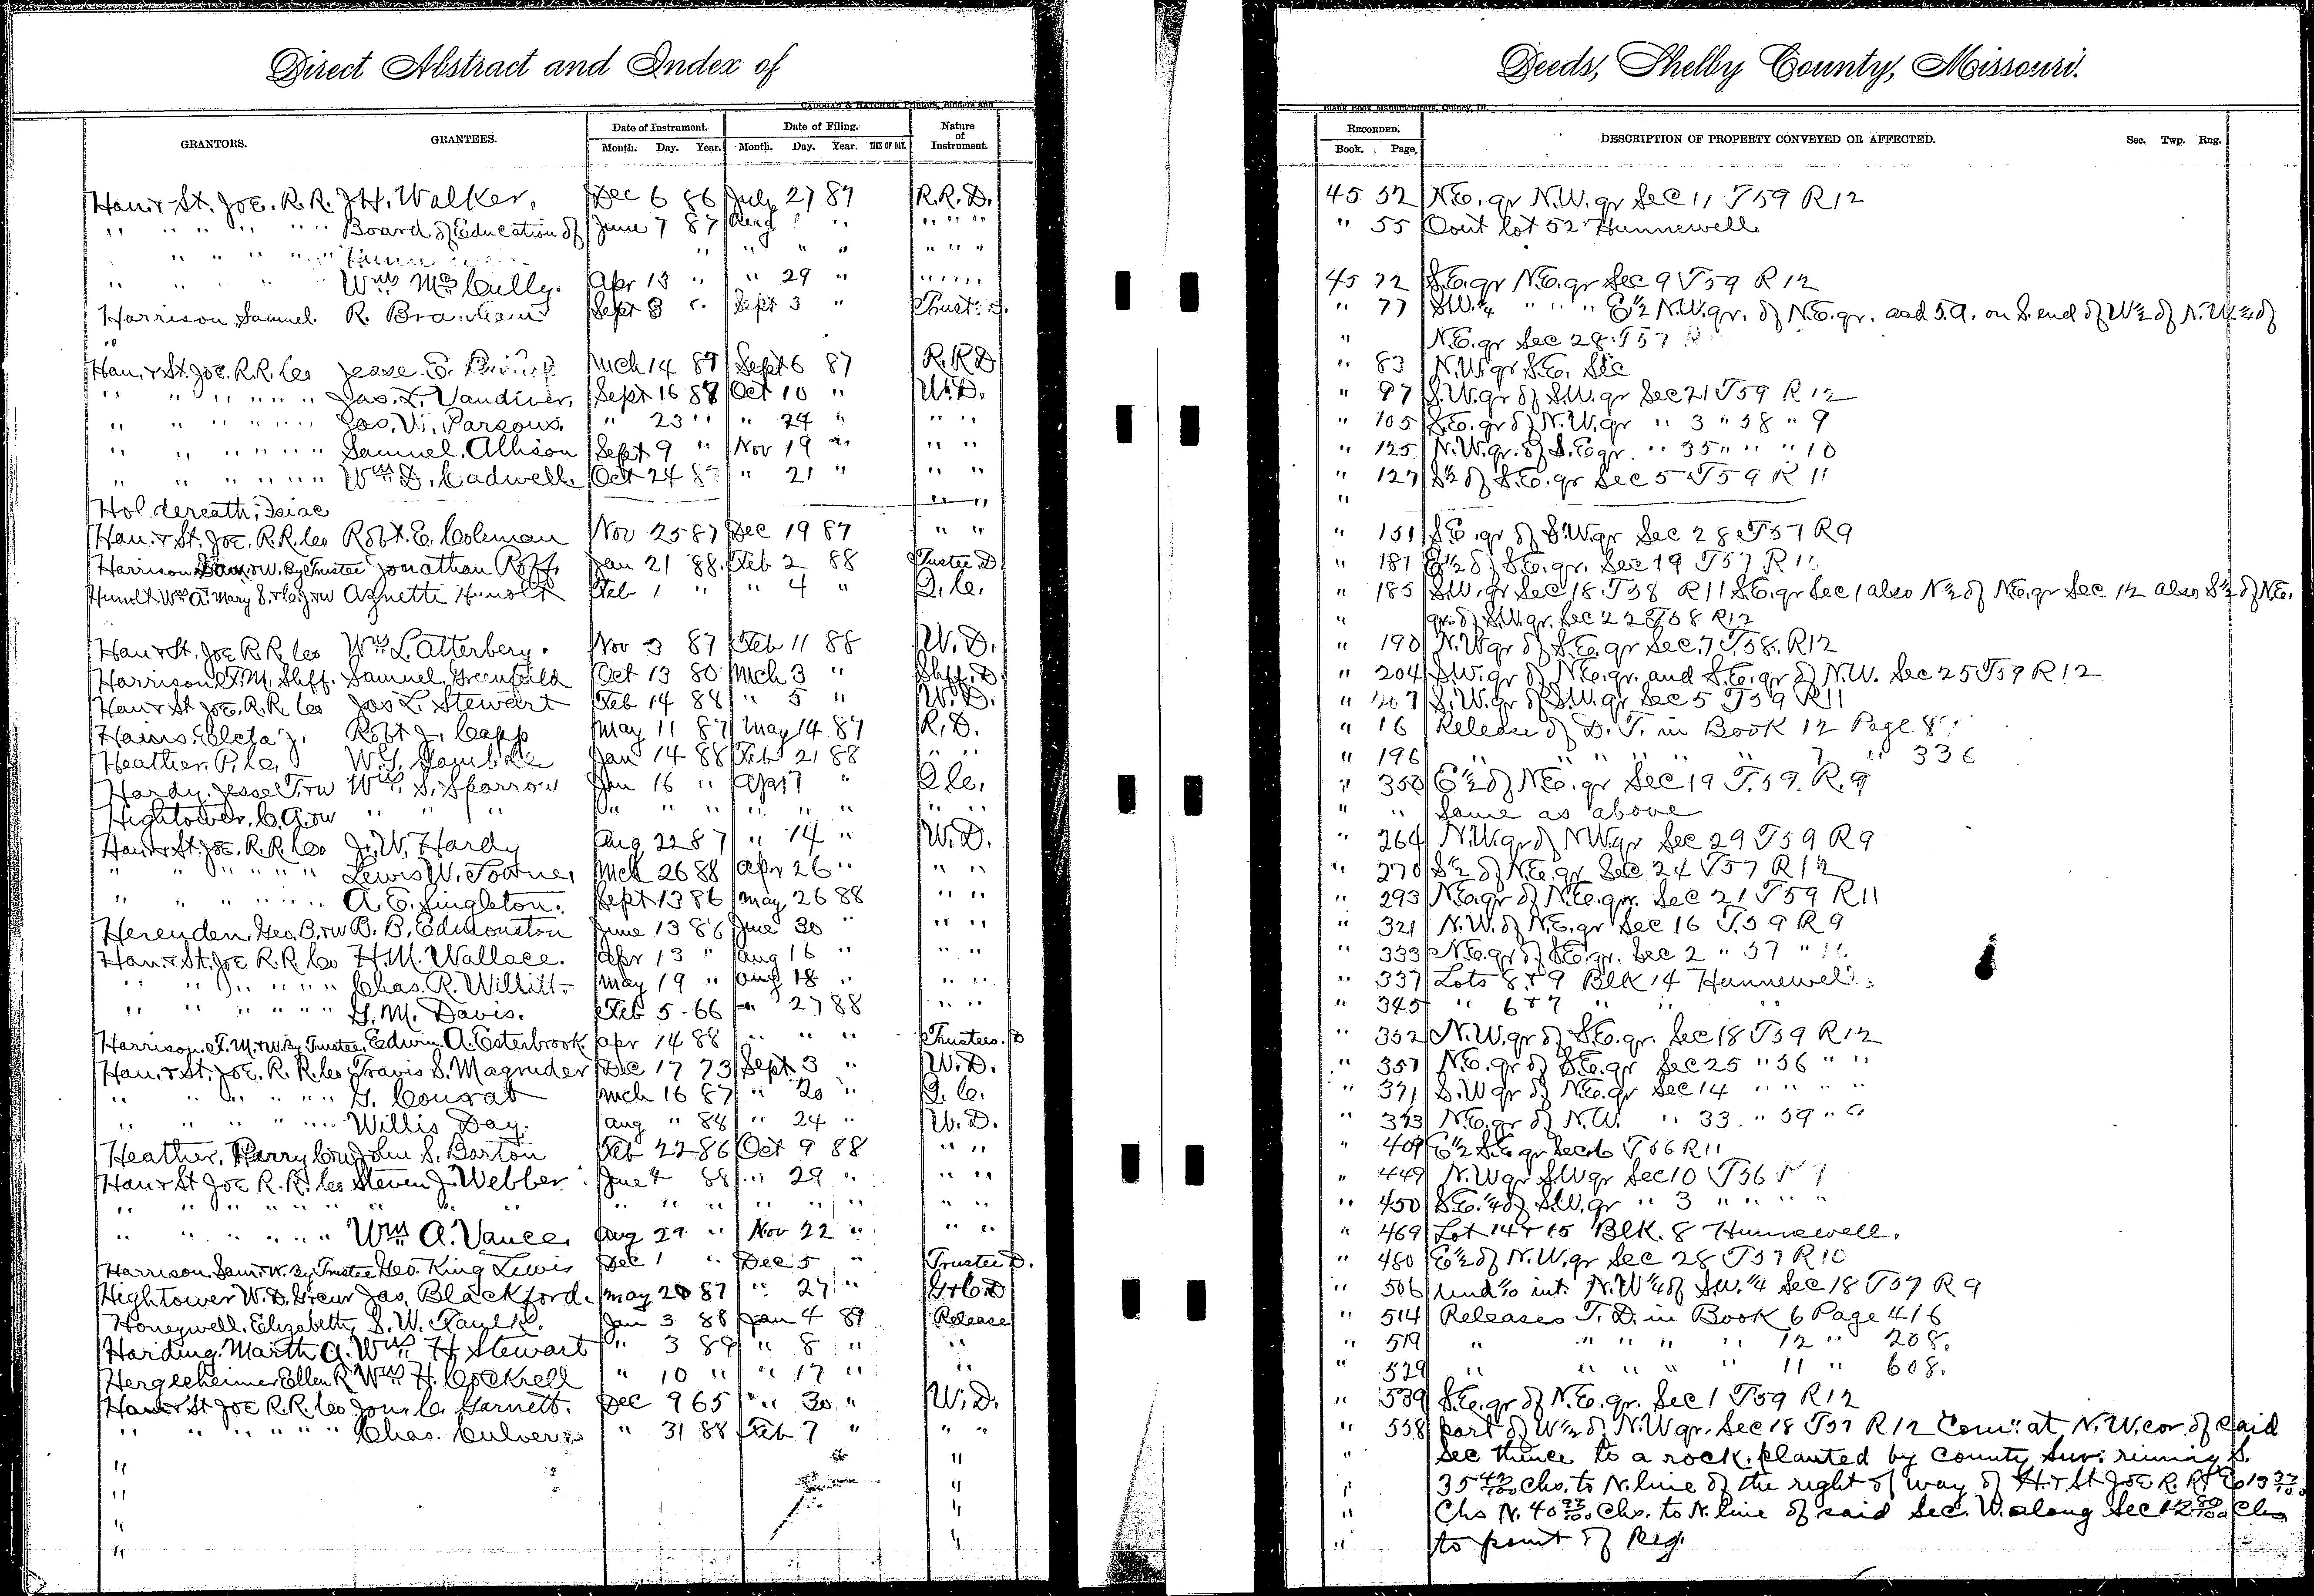 Direct Abstract and Index of
Deeds, Shelby County, Missouri.
CADOGAN & HATCHER, Printers, Binders and
Blank Book Manufacturers, Quincy, Ill.
GRANTORS. GRANTEES. Date of Instrument. Date of Filing. Nature of Instrument.
Month. Day. Year. Month. Day. Year. TIME OF DAY.
RECORDED. DESCRIPTION OF PROPERTY CONVEYED OR AFFECTED. Sec. Twp. Rng.
Book. Page.
Han. & St. Joe. R. R. J H. Walker. Dec 6 86 July 27 87 R. R. D. 45 52 N.E. qr N.W. qr Sec 11 T 59 R 12
" " " " " Board of Education of June 7 87 Aug " " " " " 55 Out lot 52 Hunnewell
" " " " " " " " " " " "
" " " " Wm McCully. Apr 13 " " 29 " " " " 45 72 S.E. qr N.E. qr Sec 9 T 59 R 12
Harrison, Samuel. R. Sept 3 " Sept 3 " Trust. D. " 77 S.W. ¼ " " " E ½ N.W. qr. of N.E. qr. and 5 a. on S. end of W ½ of N.W. ¼ of
" " N.E. qr Sec 28 T 57 R
Han. & St. Joe. R.R. Co Jesse E. Mch 14 87 Sept 6 87 R. R D " 83 N.W. qr S.E. Sec
" " " " " Jas. L. Vandiver. Sept 16 87 Oct 10 " W. D. " 97 S.W. qr of S.W. qr Sec 21 T 59 R 12
" " " " " Jas. W. Parsons. " 23 " " 24 " " " " 105 S.E. qr of N.W. qr " 3 " 58 " 9
" " " " " Samuel. Allison Sept 9 " Nov 19 " " " " 125 N.W. qr. of S.E. qr. " 35 " " " 10
" " " " " Wm D. Cadwell Oct 24 87 " 21 " " " " 127 S ½ of S.E. qr Sec 5 T 59 R 11
Holdereath, Isiac " " "
Han. & St. Joe. R.R. Co Robt. E. Coleman Nov 25 87 Dec 19 87 " " " 151 S.E. qr of S.W. qr Sec 28 T 57 R 9
Harrison Sam & W. By Trustee Jonathan Roff. Jan 21 88. Feb 2 88 Trustee D " 181 E ½ of S.E. qr. Sec 19 T 57 R
Hunolt Wm A. Mary S. & C. J. & W Agnetti Hunolt Feb 1 " " 4 " Q. C. " 185 S.W. qr Sec 18 T 58 R 11 S.E. qr Sec 1 also N ½ of N.E. qr Sec 12 also S ½ of N.E.
" " qr. of S.W. qr. Sec 22 T 58 R 12
Han & St. Joe R.R. Co Wm L. Atterbery. Nov 3 87 Feb 11 88 W. D. " 190 N.W qr of S.E. qr Sec. 7 T. 58. R 12
Harrison T. M. Shff. Samuel. Greenfeild Oct 13 80 Mch 3 " Shff. D. " 204 S.W. qr of N.E. qr. and S.E. qr of N.W. Sec 25 T 59 R 12
Han & St Joe. R.R. Co Jas L. Stewart Feb 14 88 " 5 " W. D. " 207 S.W. qr of S.W. qr Sec 5 T 59 R 11
Robt J. Capp May 11 87 May 14 87 R. D. " 16 Release of D. T. in Book 12 Page
Heather. P. Jan 14 88 Feb 21 88 " " " 196 " " " " " 7 " 336
Hardy. Jesse T. & W Wm. S. Sparrow Jan 16 " Apr 7 " Q. C. " 350 E ½ of N.E. qr Sec 19 T. 59. R. 9
Hightower. C. A. & W " " " " " " " " " " " " " Same as above
Han & St. Joe. R.R. Co J. W. Hardy Aug 22 87 " 14 " W. D. " 264 N.W. qr of N.W. qr Sec 29 T 59 R 9
" " " " " Lewis W. Mch 26 88 Apr 26 " " " " 270 S ½ of N.E. qr Sec 24 T 57 R 12
" " " " " A. E. Singleton. Sept 13 86 May 26 88 " " " 293 N.E. qr of N.E. qr. Sec 21 T 59 R 11
Herenden. Geo. B. & W B. B. Edmonston June 13 86 June 30 " " " " 321 N.W. of N.E. qr Sec 16 T. 59 R 9
Han. & St. Joe R.R. Co H. M. Wallace. Apr 13 " Aug 16 " " " " 333 N.E. qr of S.E. qr. Sec 2 " 57 " 10
" " " " " Chas. R. Willitt May 19 " Aug 18 " " " " 337 Lots 8 & 9 Blk 14 Hunnewell.
" " " " " G. M. Davis. Feb 5 66 " 27 88 " " " 345 " 6 & 7 " " "
Harrison. T. M. & W. By Trustee. Edwin. A. Esterbrook Apr 14 88 " " " Trustees. D " 352 N.W. qr of S.E. qr. Sec 18 T 59 R 12
Han. & St. Joe. R. R. Co Travis S. Magruder Dec 17 73 Sept 3 " W. D. " 357 N.E. qr of S.E. qr Sec 25 " 56 " "
" " " " " G. Mch 16 87 " 20 " Q. C. " 371 S.W qr of N.E. qr Sec 14 " " " "
" " " " " Willis Day. Aug " 88 " 24 " W. D. " 373 N.E. qr of N.W. " 33. " 59 " 9
Heather, Perry John S. Barton Feb 22 86 Oct 9 88 " " " 409 E ½ S.E. qr Sec 6 T 56 R 11
Han & St Joe R. R. Co Steven J. Webber. June 4 88 " 29 " " " " 449 N.W qr S.W qr Sec 10 T 56 R 9
" " " " " " " " " " " " " " " 450 S.E. ¼ of S.W. qr " 3 " " " "
" " " " " Wm A. Vance. Aug 29 " Nov 22 " " " " 469 Lot 14 & 15 Blk. 8 Hunnewell.
Harrison. Sam. & W. By Trustee Geo. King Lewis Dec 1 " Dec 5 " Trustee D. " 480 E ½ of N.W. qr Sec 28 T 57 R 10
Hightower W. D. Jas. Blackford. May 20 87 " 27 " G & C. D " 506 int. N.W ¼ of S.W. ¼ Sec 18 T 57 R 9
Honeywell. Elizabeth, S. W. Jan 3 88 Jan 4 89 Release " 514 Releases T. D. in Book 6 Page 416
Harding. Marth A. Wm H Stewart " 3 89 " 8 " " " 519 " " " " " 12 " 208.
Hergesheimer Ellen R Wm H. Cockrell " 10 " " 17 " " " 529 " " " " " 11 " 608.
Han & St Joe R.R. Co Jon. C. Garnett. Dec 9 65 " 30 " W. D. " 539 S.E. qr of N.E. qr. Sec 1 T 59 R 12
" " " " " Chas. Culver " 31 88 Feb 7 " " " " 558 part of W ½ of N.W qr. Sec 18 T 57 R 12 Com: at N.W. cor. of said
" " " Sec thence to a rock. planted by County Sur: running S.
" " " 35 42/100 Chs. to N. line of the right of way of H. & St Joe R. R.
" " " Chs N. 40 Chs. to N. line of said Sec. W. along Sec 12 80/100 Chs
" " " to point of Beg.